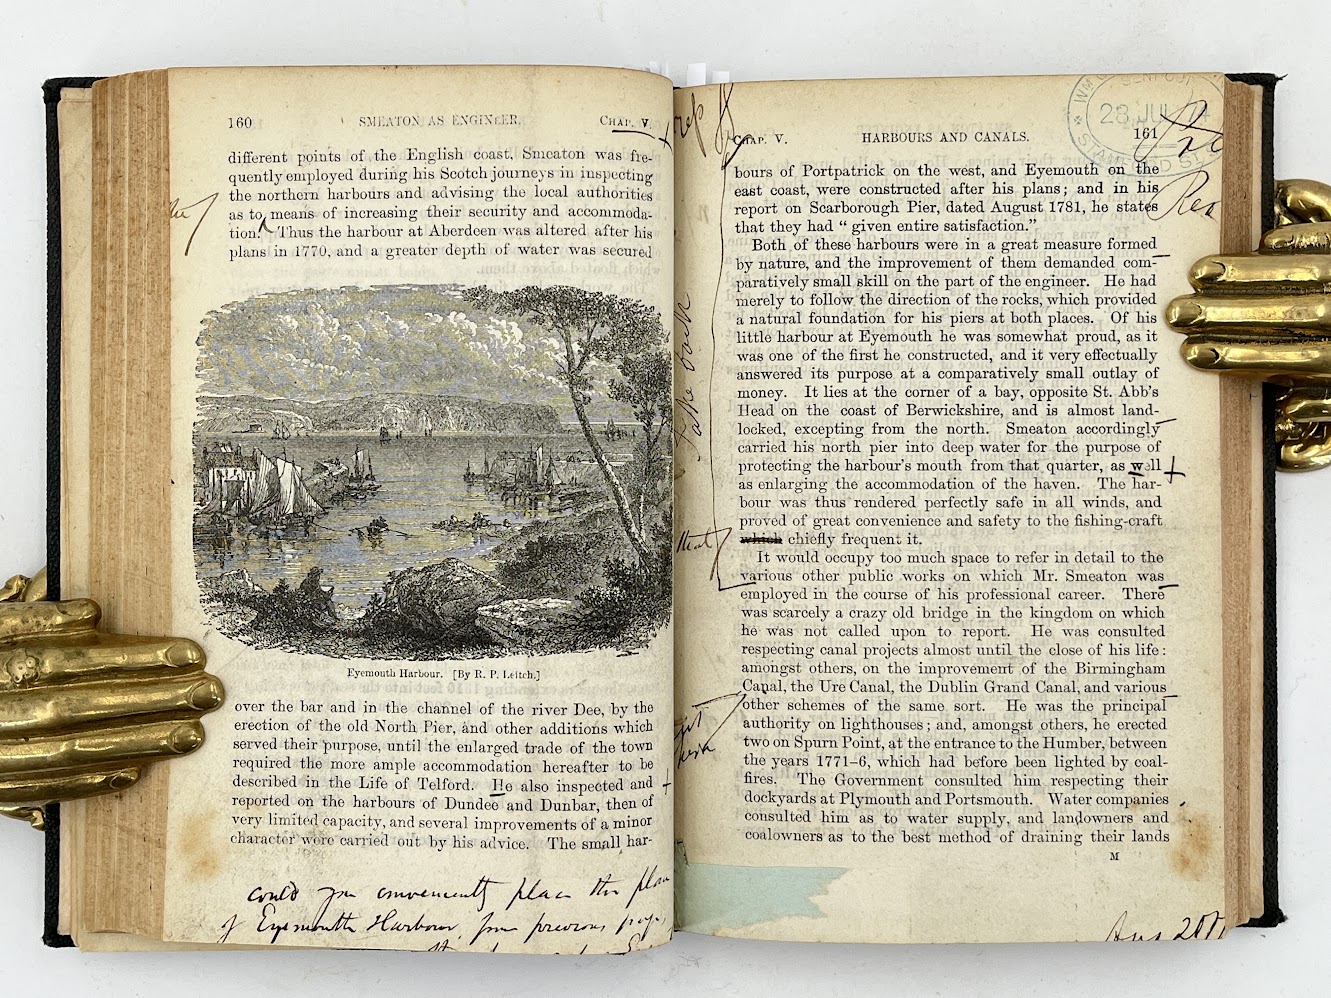 160
SMEATON AS ENGINEER.
CHAP. V.
different points of the English coast. Smeaton was fre-
quently employed during his Scotch journeys in inspecting
the northern harbours and advising the local authorities
as to means of increasing their security and accommoda-
tion. Thus the harbour at Aberdeen was altered after his
plans in 1770, and a greater depth of water was secured
Eyemouth Harbour. [By R. P. Leitch.]
over the bar and in the channel of the river Dee, by the
erection of the old North Pier, and other additions which
served their purpose, until the enlarged trade of the town
required the more ample accommodation hereafter to be
described in the Life of Telford. He also inspected and
reported on the harbours of Dundee and Dunbar, then of
very limited capacity, and several improvements of a minor
character were carried out by his advice. The small har-
could you conveniently place the plan
of Eyemouth Harbour, from previous page,
CHAP. V.
HARBOURS AND CANALS.
161
28 JUL
bours of Portpatrick on the west, and Eyemouth on the
east coast, were constructed after his plans; and in his
report on Scarborough Pier, dated August 1781, he states
that they had "given entire satisfaction."
Both of these harbours were in a great measure formed
by nature, and the improvement of them demanded com-
paratively small skill on the part of the engineer. He had
merely to follow the direction of the rocks, which provided
a natural foundation for his piers at both places. Of his
little harbour at Eyemouth he was somewhat proud, as it
was one of the first he constructed, and it very effectually
answered its purpose at a comparatively small outlay of
money. It lies at the corner of a bay, opposite St. Abb's
Head on the coast of Berwickshire, and is almost land-
locked, excepting from the north. Smeaton accordingly
carried his north pier into deep water for the purpose of
protecting the harbour's mouth from that quarter, as well
as enlarging the accommodation of the haven. The har-
bour was thus rendered perfectly safe in all winds, and
proved of great convenience and safety to the fishing-craft
that
which chiefly frequent it.
It would occupy too much space to refer in detail to the
various other public works on which Mr. Smeaton was
employed in the course of his professional career. There
was scarcely a crazy old bridge in the kingdom on which
he was not called upon to report. He was consulted
respecting canal projects almost until the close of his life:
amongst others, on the improvement of the Birmingham
Canal, the Ure Canal, the Dublin Grand Canal, and various
other schemes of the same sort. He was the principal
authority on lighthouses; and, amongst others, he erected
two on Spurn Point, at the entrance to the Humber, between
the years 1771–6, which had before been lighted by coal-
fires. The Government consulted him respecting their
dockyards at Plymouth and Portsmouth. Water companies
consulted him as to water supply, and landowners and
coalowners as to the best method of draining their lands
M
take back